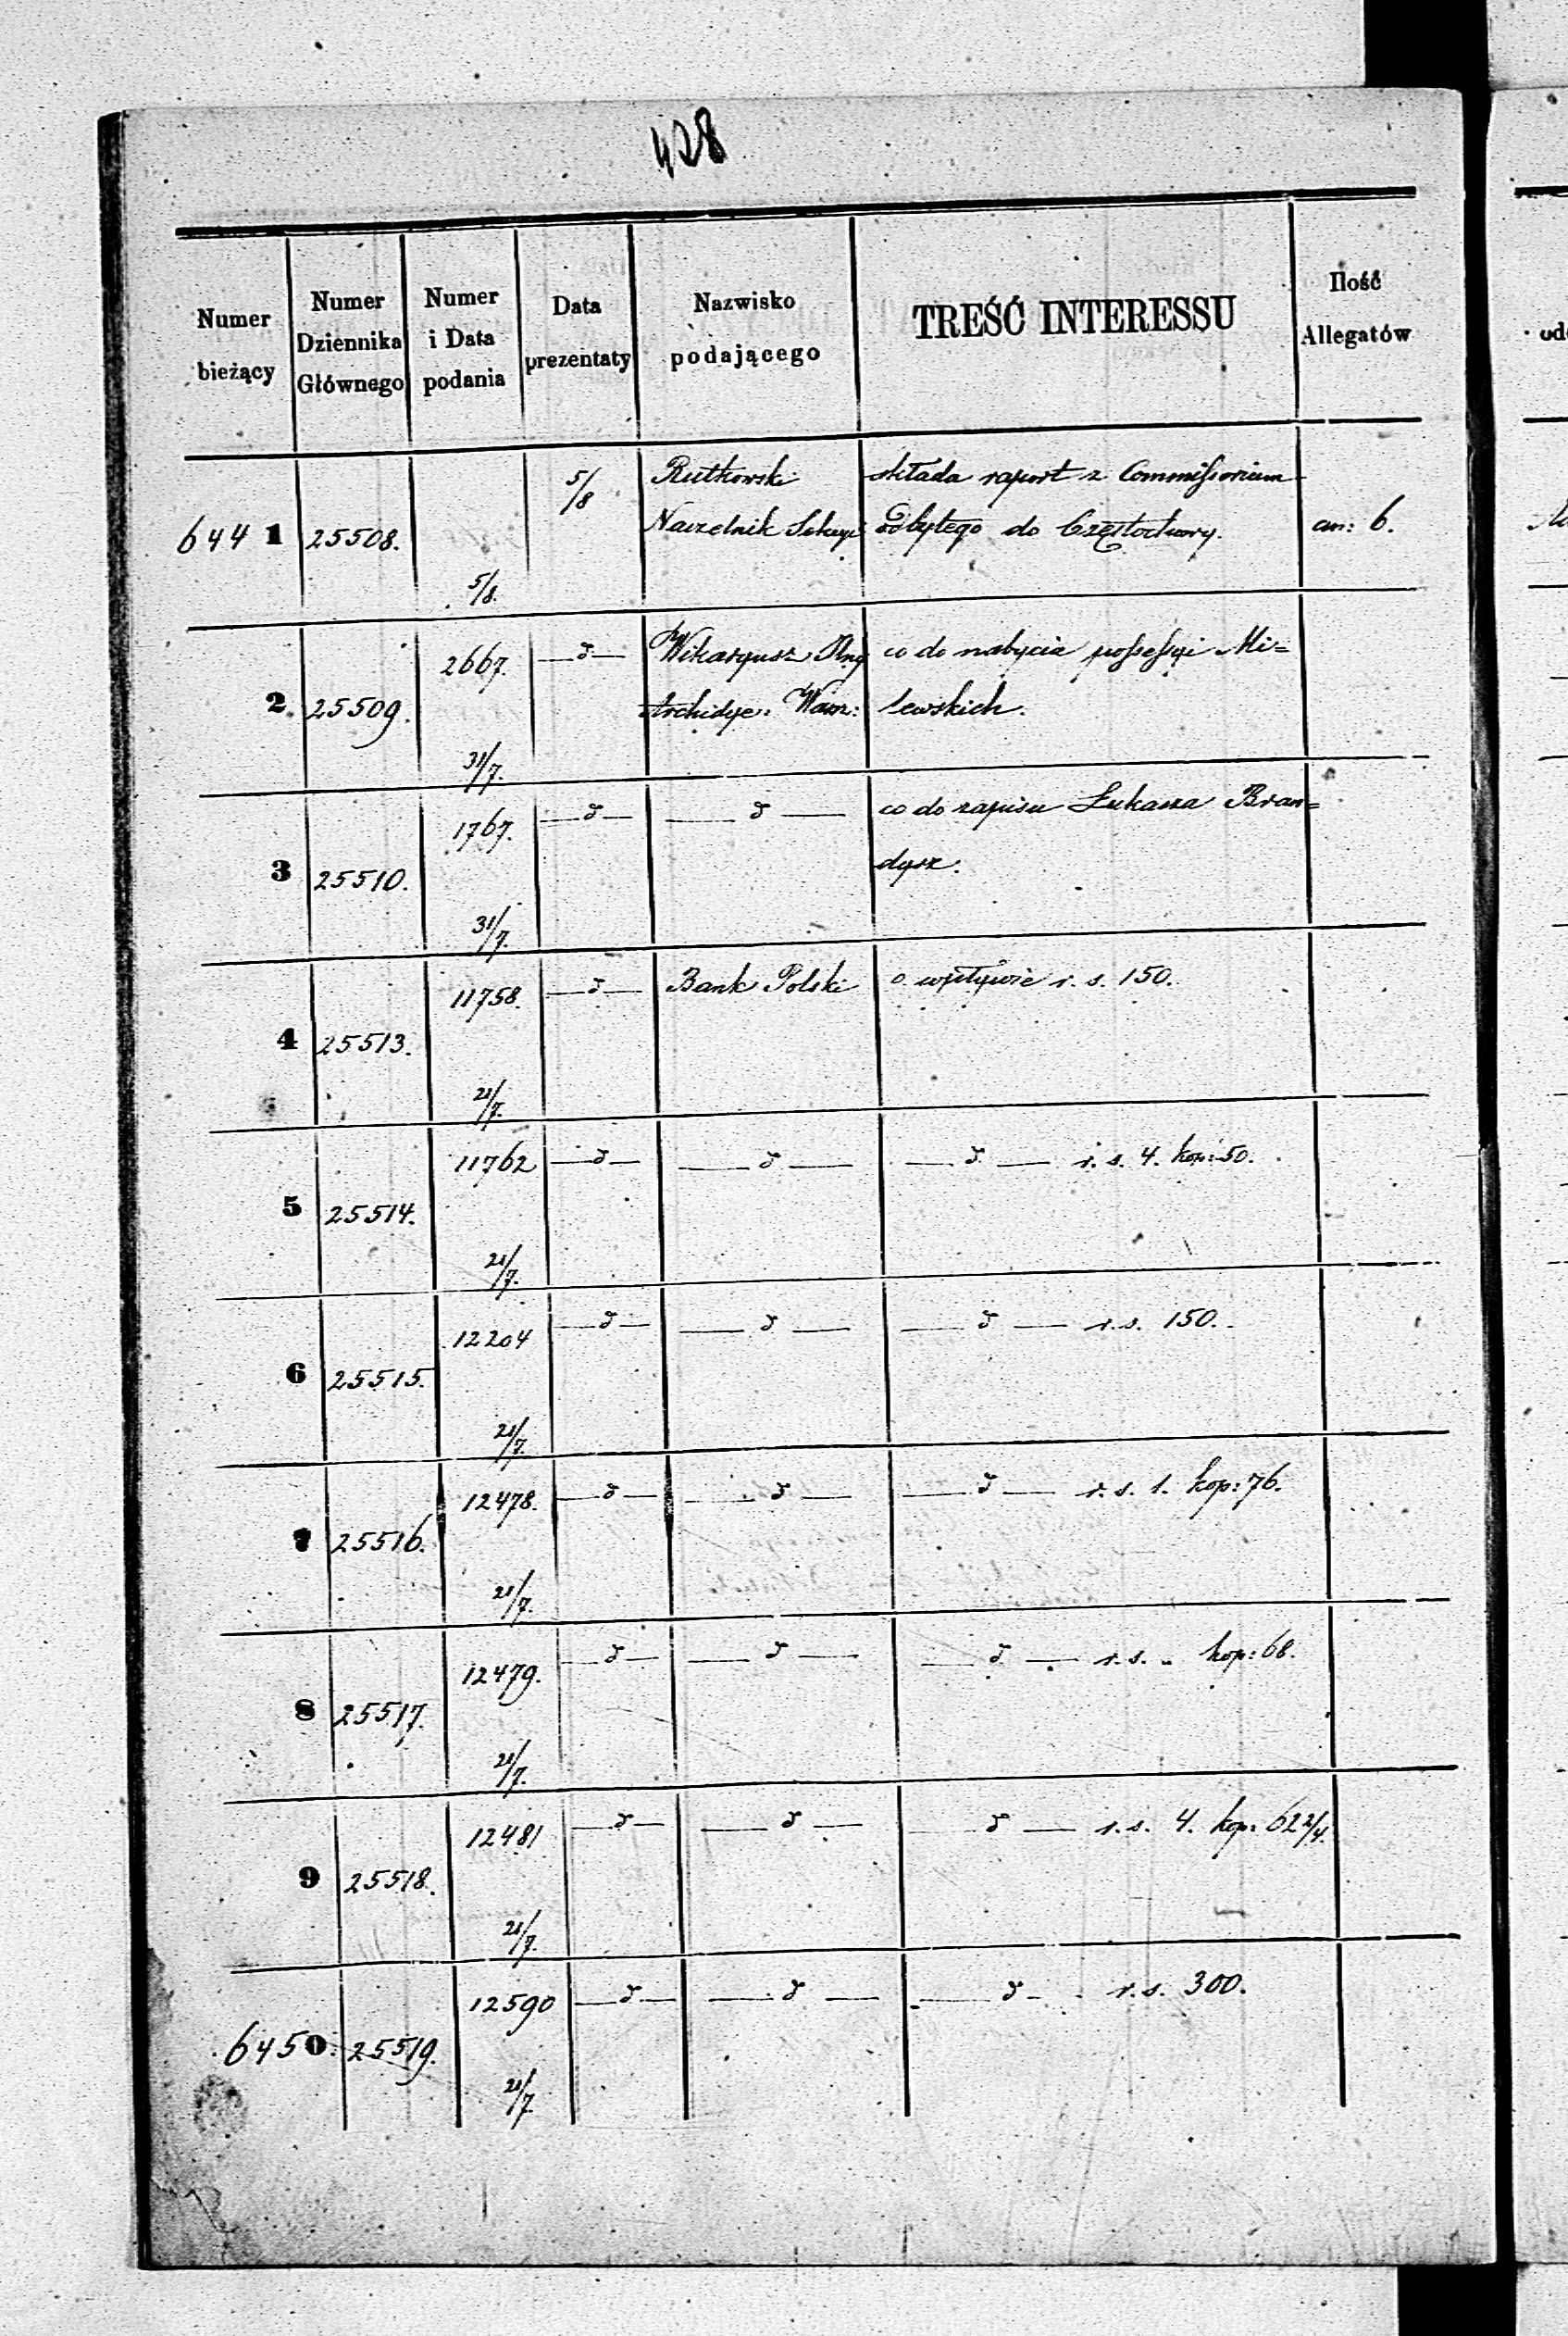 428
Numer bieżący | Numer Dziennika Głównego | Numer i Data podania | Data prezentaty | Nazwisko podającego | TREŚĆ INTERESSU | Ilość Allegatów
6441 | 25508. | 5/8. | 5/8 | Rutkowski | składa raport z Commissorium
Naczelnik Sekcyi | odbytego do Częstochowy. | an: 6.
2. | 25509. | 2667. 31/7. | —d— | Wikaryusz | co do nabycia possessyi Mi=
Archidye: Warsz: | lewskich.
3 | 25510. | 1767. 31/7. | —d— | —d— | co do zapisu Łukasza Bran=
dysz.
4 | 25513. | 11758. 21/7. | —d— | Bank Polski | o wpływie r. s. 150.
5 | 25514. | 11762 21/7. | —d— | —d— | —d— r. s. 4. kop: 50.
6 | 25515. | 12204 21/7. | —d— | —d— | —d— r. s. 150.
7 | 25516. | 12478. 21/7. | —d— | —d— | —d— r. s. 1. kop: 76.
8 | 25517. | 12479. 21/7. | —d— | —d— | —d— r. s. „ kop: 68.
9 | 25518. | 12481 21/7. | —d— | —d— | —d— r. s. 4. kop: 62 2/4.
6450. | 25519. | 12590 21/7 | —d— | —d— | —d— r. s. 300.